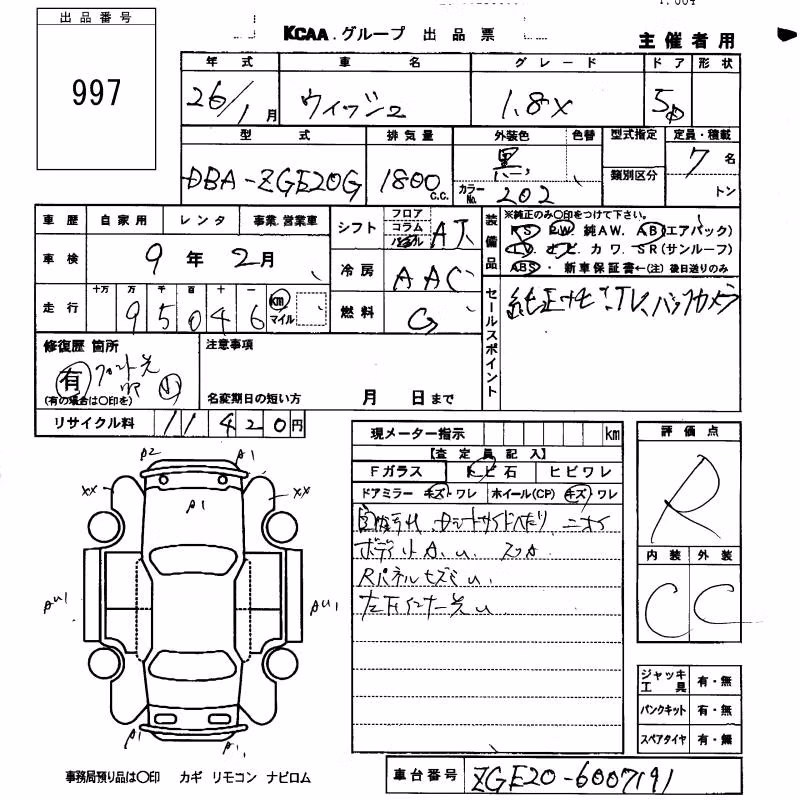 出品番号
997
KCAA.グループ 出品票
主催者用
年式 車名 グレード ドア 形状
26/1月 ウィッシュ 1.8X 5D
型式 排気量 外装色 色替 型式指定 定員・積載
DBA-ZGE20G 1800c.c. 黒 7名
カラーNo. 202 類別区分 トン
車歴 自家用 レンタ 事業.営業車
シフト フロア コラム AT
装備品 ※純正のみ○印をつけて下さい。
PS PW 純AW. AB(エアバック)
LV. ナビ. カワ. SR(サンルーフ)
ABS ・新車保証書←(注)後日送りのみ
車検 9年2月
冷房 AAC
走行 十万 万 千 百 十 一
95046 km マイル
燃料 G
セールスポイント
純正ナビ・TV、バックカメラ
修復歴 箇所
有
(有の場合は○印を)
注意事項
名変期日の短い方 月 日まで
リサイクル料 11420円
現メーター指示 km
【査定員記入】
Fガラス トビ石 ヒビワレ
ドアミラー キズ・ワレ ホイール(CP) キズ・ワレ
評価点
R
内装 外装
C C
A2 A1
XX A1 XX
ボディ小A.U.
RパネルヒズミU.
AU1 AU1
A1 A1
ジャッキ工具 有・無
パンクキット 有・無
スペアタイヤ 有・無
事務局預り品は○印 カギ リモコン ナビロム
車台番号 ZGE20-6007191